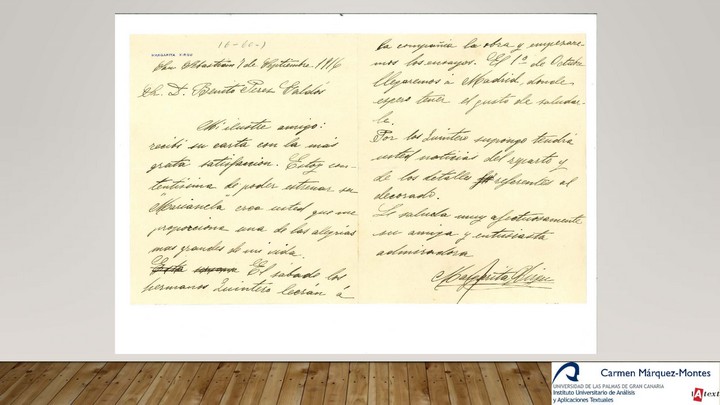 10-60-1
MARGARITA XIRGU
San Sebastián 1 de Septiembre 1916
Sr. D. Benito Perez Galdós
Mi ilustre amigo:
recibi su carta con la más
grata satisfaccion. Estoy con-
tentisima de poder estrenar su
"Marianela" crea usted que me
proporciona una de las alegrias
mas grandes de mi vida.
El sábado los
hermanos Quintero leerán á
la compañia la obra y empezare-
mos los ensayos. El 1º de Octubre
llegaremos a Madrid, donde
espero tener el gusto de saludar-
le.
Por los Quintero supongo tendrá
usted noticias del reparto y
de los detalles referentes al
decorado.
Le saluda muy afectuosamente
su amiga y entusiasta
admiradora
Margarita Xirgu
Carmen Márquez-Montes
UNIVERSIDAD DE LAS PALMAS DE GRAN CANARIA
Instituto Universitario de Análisis
y Aplicaciones Textuales
IAtext